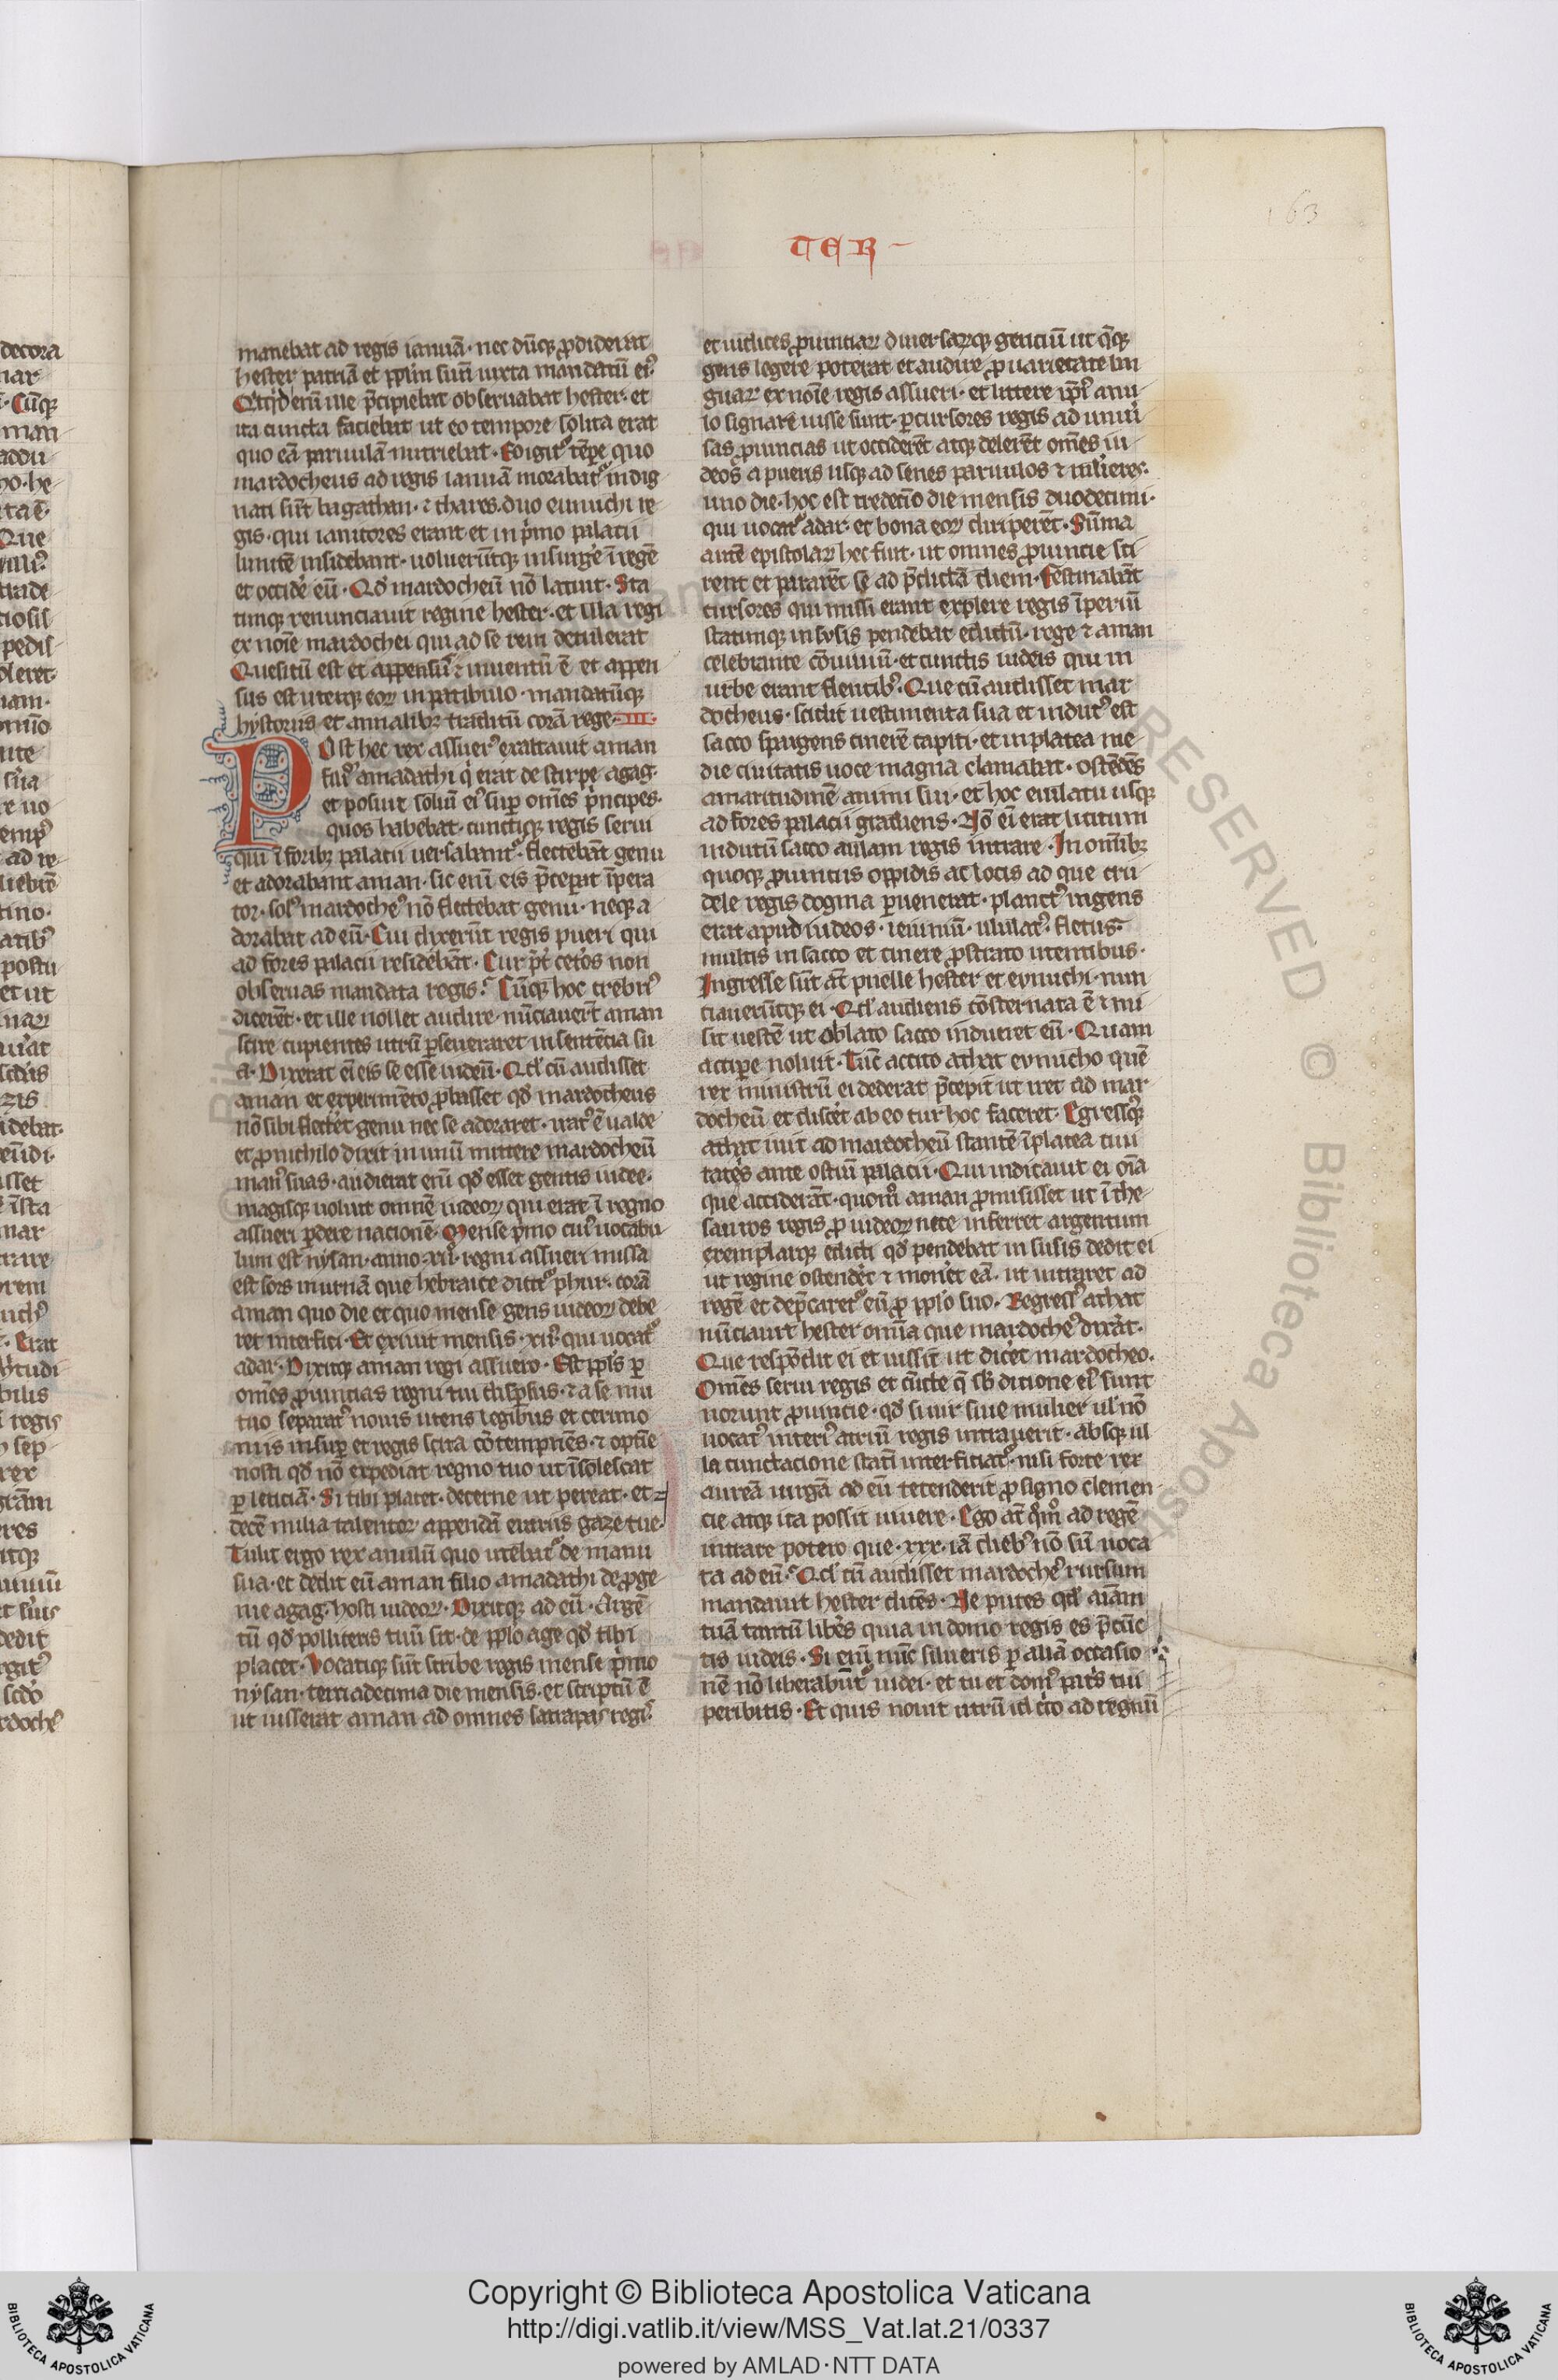 163
TER
manebat ad regis ianuā · nec dūq̧ ꝓdiderat
hester patriā et pplm̄ suū iuxta mandatū eiꝰ
Qͥcqͥd enī ille p̄cipiebat obseruabat hester · et
ita cuncta faciebat ut eo tempore solita erat
quo eā paruulā nutriebat · Eo igitᷣ tēpe quo
mardocheus ad regis ianuā morabatᷣ indig
nati sūt bagathan · ⁊ thares · duo eunuchi re
gis · qui ianitores erant et in pͥmo palacii
limitē insidebant · uoluerūtq̧ insurgē ī regē
et occidē eū · Qđ mardocheū nō latuit · Sta
timq̧ renunciauit regine hester · et illa regi
ex noīe mardochei qui ad se rem detulerat
Quesitū est et appensū ⁊ inuentū ē et appen
sus est uterq̧ eoꝝ in patibulo · mandatūq̧
hystoriis et annalibꝫ traditū corā rege · III ·
Post hec rex assuerꝰ exaltauit aman
filiū amadathi qͥ erat de stirpe agag ·
et posuit soliū eiꝰ sup̱ omēs pͥncipes ·
quos habebat · cunctiq̧ regis serui
qui ī foribꝫ palacii uersabantᷣ · flectebāt genu
et adorabant aman · sic enī eis p̄ceperat īpera
tor · solꝰ mardocheꝰ nō flectebat genu · neq̧ a
dorabat ad eū · Cui dixerūt regis pueri qui
ad fores palacii residebāt · Cur p̄t̄ cetōs non
obseruas mandata regis · Cūq̧ hoc crebriꝰ
dicerēt · et ille nollet audire · nūciauerūt aman
scire cupientes utrū p̱seueraret in sentēcia su
a · Dixerat enī eis se esse iudeū · Qđ cū audisset
aman et experimēto ꝓbasset qđ mardocheus
nō sibi flecteret genu nec se adoraret · iratꝰ ē ualde
et ꝓ nichilo dixit in unū mittere mardocheū
manꝰ suas · audierat enī qđ esset gentis iudee ·
magisq̧ uoluit omnē iudeoꝝ qui erāt ī regno
assueri p̱dere nacionē · Mense pͥmo cuiꝰ uocabu
lum est nysan · anno · xii · regni assueri missa
est sors in urnā que hebraice dicitᷣ phur · corā
aman quo die et quo mense gens iudeoꝝ debe
ret interfici · Et exiuit mensis · xii · qui uocatᷣ
adar · Dixitq̧ aman regi assuero · Est ppls̄ p̱
omēs ꝓuincias regni tui disp̱sus · ⁊ a se mu
tuo separatꝰ nouis utens legibus et cerimo
niis insup̱ et regis scita cōtempnēs · ⁊ optīe
nosti qđ nō expediat regno tuo ut īsolescat
p̱ leticiā · Si tibi placet · decerne ut pereat · et
decē milia talentoꝝ appendā erariis gaze tue ·
Tulit ergo rex anulū quo utebatᷣ de manu
sua · et dedit eū aman filio amadathi de ꝓge
nie agag · hosti iudeoꝝ · Dixitq̧ ad eū · Argē
tū qđ polliceris tuū sit · de pplo age qđ tibi
placet · Vocatiq̧ sūt scribe regis mense pͥmo
nysan · terciadecima die mensis · et scriptū ē
ut iusserat aman ad omnes satrapas regis
et iudices ꝓuinciaꝝ diuersaꝝq̧ genciū ut q̄q̧
gens legere poterat et audire ꝓ uarietate lin
guaꝝ ex noīe regis assueri · et littere ip̄iꝰ anu
lo signate misse sunt · p̱ cursores regis ad uniū
sas ꝓuincias ut occiderēt atq̧ delerēt omēs iu
deos a pueris usq̧ ad senes paruulos ⁊ mlīeres ·
uno die · hoc est tredecīo die mensis duodecimi ·
qui uocatᷣ adar · et bona eoꝝ diriperēt · Sūma
autē epistolaꝝ hec fuit · ut omnes ꝓuincie sci
rent et pararēt se ad p̄dictā diem · Festinabāt
cursores qui missi erant explere regis īperiū
statimq̧ in susis pendebat edictū · rege ⁊ aman
celebrante cōuiuiū · et cunctis iudeis qui in
urbe erant flentibꝰ · Que cū audisset mar
docheus · scidit uestimenta sua et indutꝰ est
sacco spargens cinerē capiti · et in platea me
die ciuitatis uoce magna clamabat · ostēdēs
amaritudinē animi sui · et hoc eiulatu usq̧
ad fores palacii gradiens · Nō enī erat licitum
indutū sacco aulam regis intrare · In omībꝫ
quoq̧ ꝓuinciis oppidis ac locis ad que cru
dele regis dogma p̱uenerat · planctꝰ ingens
erat apud iudeos · ieiuniū · ululatꝰ · fletus ·
multis in sacco et cinere ꝓ strato utentibus ·
Ingresse sūt āt puelle hester et eynuchi · nun
ciauerūtq̧ ei · Qđ audiens cōsternata ē ⁊ mi
sit uestē ut oblato sacco indueret eū · Quam
accipe noluit · Tūc accito athat eynucho quē
rex ministrū ei dederat p̄cepit ut iret ad mar
docheū et disceret ab eo cur hoc faceret · Egressq̧
athat iuit ad mardocheū stantē ī platea ciui
tatēs ante ostiū palacii · Qui indicauit ei oīa
que acciderāt · quomͦ aman ꝓmisisset ut ī the
sauros regis ꝓ iudeoꝝ nece inferret argentum
exemplarq̧ edicti qđ pendebat in susis dedit ei
ut regine ostenderet ⁊ moneret eā · ut intraret ad
regē et dep̄caretᷣ eū ꝓ pplo suo · Regressꝰ athat
nūciauit hester omīa que mardocheꝰ dixāt ·
Que respōdit ei et iussit ut diceret mardocheo ·
Omēs serui regis et cūcte q̄ sb̄ dicione eiꝰ sunt
norunt ꝓuincie · qđ siuir siue mulier ul̄ nō
uocatꝰ interiꝰ atriū regis intrauerit · absq̧ ul
la cunctacione statī interficiatᷣ · nisi forte rex
aureā uirgā ad eū tetenderit ꝓ signo clemen
cie atq̧ ita possit uiuere · Ego āt qͦmͦ ad regē
intrare potero que · xxx · iā diebꝰ nō sū uoca
ta ad eū · Qđ cū audisset mardocheꝰ rursum
mandauit hester dicēs · Ne putes qđ aīam
tuā tantū liberes quia in domo regis es p̄ cūc
tis iudeis · Si enī nūc silueris p̱ aliā occasio
nē nō liberabūtᷣ iudei · et tu et domꝰ patͥs tui
peribitis · Et quis nouit utrū id circo ad regnū
RESERVED © Biblioteca Apost
Copyright © Biblioteca Apostolica Vaticana
http://digi.vatlib.it/view/MSS_Vat.lat.21/0337
powered by AMLAD · NTT DATA
BIBLIOTECA APOSTOLICA VATICANA
BIBLIOTECA APOSTOLICA VATICANA